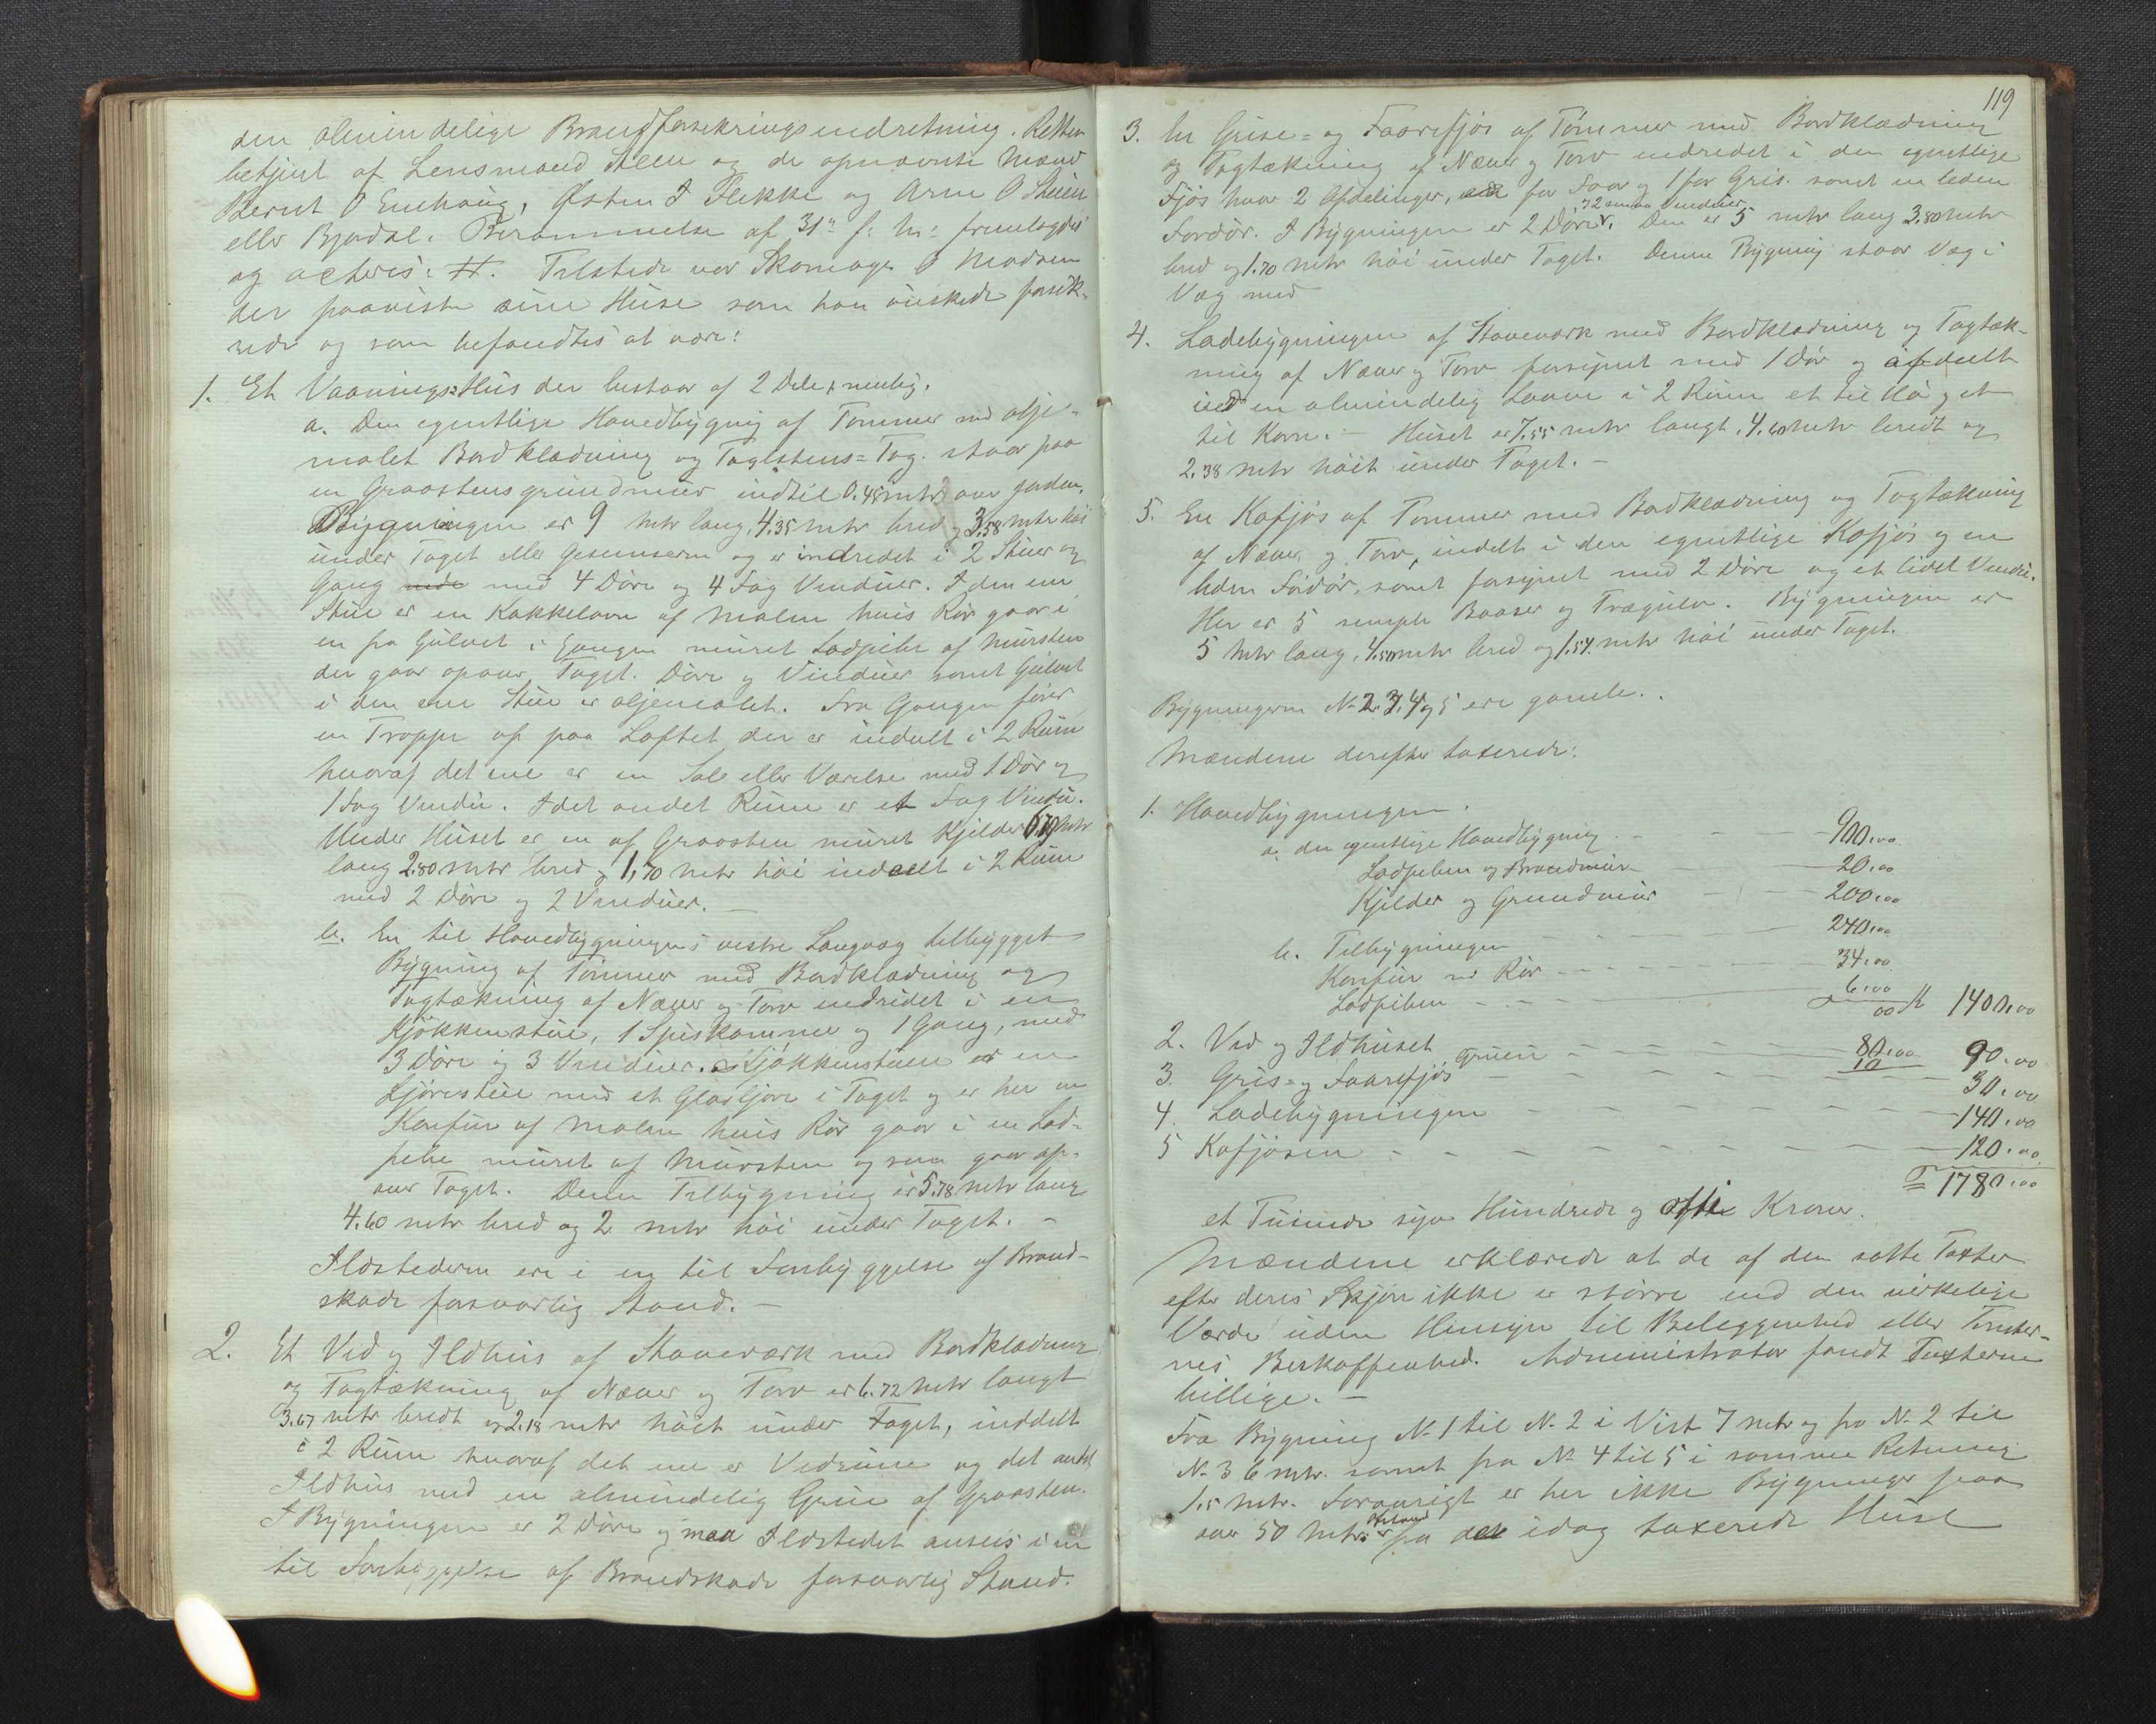 den almindelige Brandforsekringsindretning. Retten
betjent af Lensmand Steen og de opnævnte Mænd
Bernt O Enehaug, Østen J Flekke og Arne O Steien
eller Bjordal. Berammelse af 31te f: M: fremlagdes
og acteris: #. Tilstede var Skomager O Madsen
der paaviste sine Huse som han ønskede forsik-
rede og som befandtes at være:
1. Et Vaanings-Hus der bestaar af 2 Dele, nemlig.
a. Den egentlige Hovedbygnig af Tømmer med olje-
malet Bordklædning og Taglstens-Tag. staar paa
en Graastensgrundmur indtil 0.45 mtr over Jorden.
Bygningen er 9 Mtr lang, 4.35 mtr bred og 3.58 mtr høi
under Taget eller Gesemserne og er indredet i 2 Stuer og
Gang med 4 Døre og 4 Fag Vinduer. I den ene
Stue er en Kakkelovn af Malm hvis Rør gaar i
en fra Gulvet i Gangen muret Ladpibe af Mursten
der gaar op over Taget. Døre og Vinduer samt Gulvet
i den ene Stue er oljemalet. Fra Gangen fører
en Trappe op paa Loftet der er indelt i 2 Rum
hvoraf det ene er en Sale eller Værelse med 1 Dør og
1 Fag Vindu. I det andet Rum er et Fag Vindu.
Under Huset er en af Graasten muret Kjelder Mtr
lang 2.80 mtr bred og 1,70 mtr høi indeelt i 2 Rum
med 2 Døre og 2 Vinduer. —
b. En til Hovedbygningens vestre Langvæg tilbygget
Bygning af Tømmer med Bordklædning og
Tagtækning af Næver og Torv indredet i en
Kjøkkenstue, 1 Spiskammer og 1 Gang, med
3 Døre og 3 Vinduer. Kjøkkenstuen er en
Ljorestue med et Glasljore i Taget og er her en
Komfur af Malm hvis Rør gaar i en Lad-
pibe muret af Mursten og som gaar op-
over Taget. Denne Tilbygning er 5.78 mtr lang
4.60 mtr bred og 2 mtr høi under Taget. —
Ildstederne ere i en til Forebyggelse af Brand-
skade forsvarlig Stand. —
2. Et Ved og Ildhus af Stavværk med Bordklædning
og Tagtækning af Næver og Torv er 6.72 Mtr langt
3.67 mtr bredt og 2.18 mtr høit under Taget, inddelt
i 2 Rum hvoraf det ene er Vedrum og det andet
Ildhus med en almindelig Grue af Graasten.
I Bygningen er 2 Døre og maa Ildstedet ansees i en
til Forebyggelse af Brandskade forsvarlig Stand.
119
3. En Grise- og Faarefjøs af Tømmer med Bordklædning
og Tagtækning af Næver og Torv indredet i den egentlige
Fjøs hvor 2 Afdelinger, for Faar og 1 for Gris. samt en liden
2 smaa Vinduer
Fordør. I Bygningen er 2 Døre. Den er 5 mtr lang 3.80 Mtr
bred og 1.70 mtr høi under Taget. Denne Bygning staar Væg i
Væg med
4. Ladebygningen af Stavværk med Bordklædning og Tagtæk-
ning af Næver og Torv forsynet med 1 Dør og afdeelt
ved en almindelig Laave i 2 Rum et til Hø og et
til Korn. — Huset er 7.55 mtr langt, 4.60 mtr bredt og
2.38 mtr høit under Taget. —
5. En Kofjøs af Tømmer med Bordklædning og Tagtækning
af Næver og Torv, indelt i den egentlige Kofjøs og en
liden Fordør, samt forsynet med 2 Døre og et lidet Vindu.
Her er 5 simple Baaser og Trægulv. Bygningen er
5 Mtr lang, 4.50 mtr bred og 1.54 mtr høi under Taget.
Bygningerne No 2. 3, 4 og 5 ere gamle.
Mændene derefter taxerede:
1. Hovedbygningen.
a. den egentlige Hovedbygning — 900.00
Ladpiben og Brandmur — 20.00
Kjelder og Grundmur — 200.00
b. Tilbygningen — 240.00
Komfur m Rør — 34.00
Ladpiben — 6.00
00 Kr 1400.00
2. Ved og Ildhuset — 80.00
Gruen — 10 90.00
3. Gris- og Faarefjøs — 30.00
4. Ladebygningen — 140.00
5 Kofjøsen — 120.00
= 1780.00
et Tusinde syv Hundrede og otti Kroner.
Mændene erklærede at de af dem satte Taxter
efter deres Skjøn ikke er større end den virkelige
Værdi uden Hensyn til Beleggenhed eller Tomter-
nes Beskaffenhed. Administrator fandt Taxterne
billige. —
Fra Bygning No 1 til No 2 i Vest 7 mtr og fra No 2 til
No 3 6 mtr. samt fra No 4 til 5 i samme Retning
1.5 mtr. Forøvrigt er her ikke Bygninger paa
Afstand
over 50 Mtrs fra de idag taxerede Huse